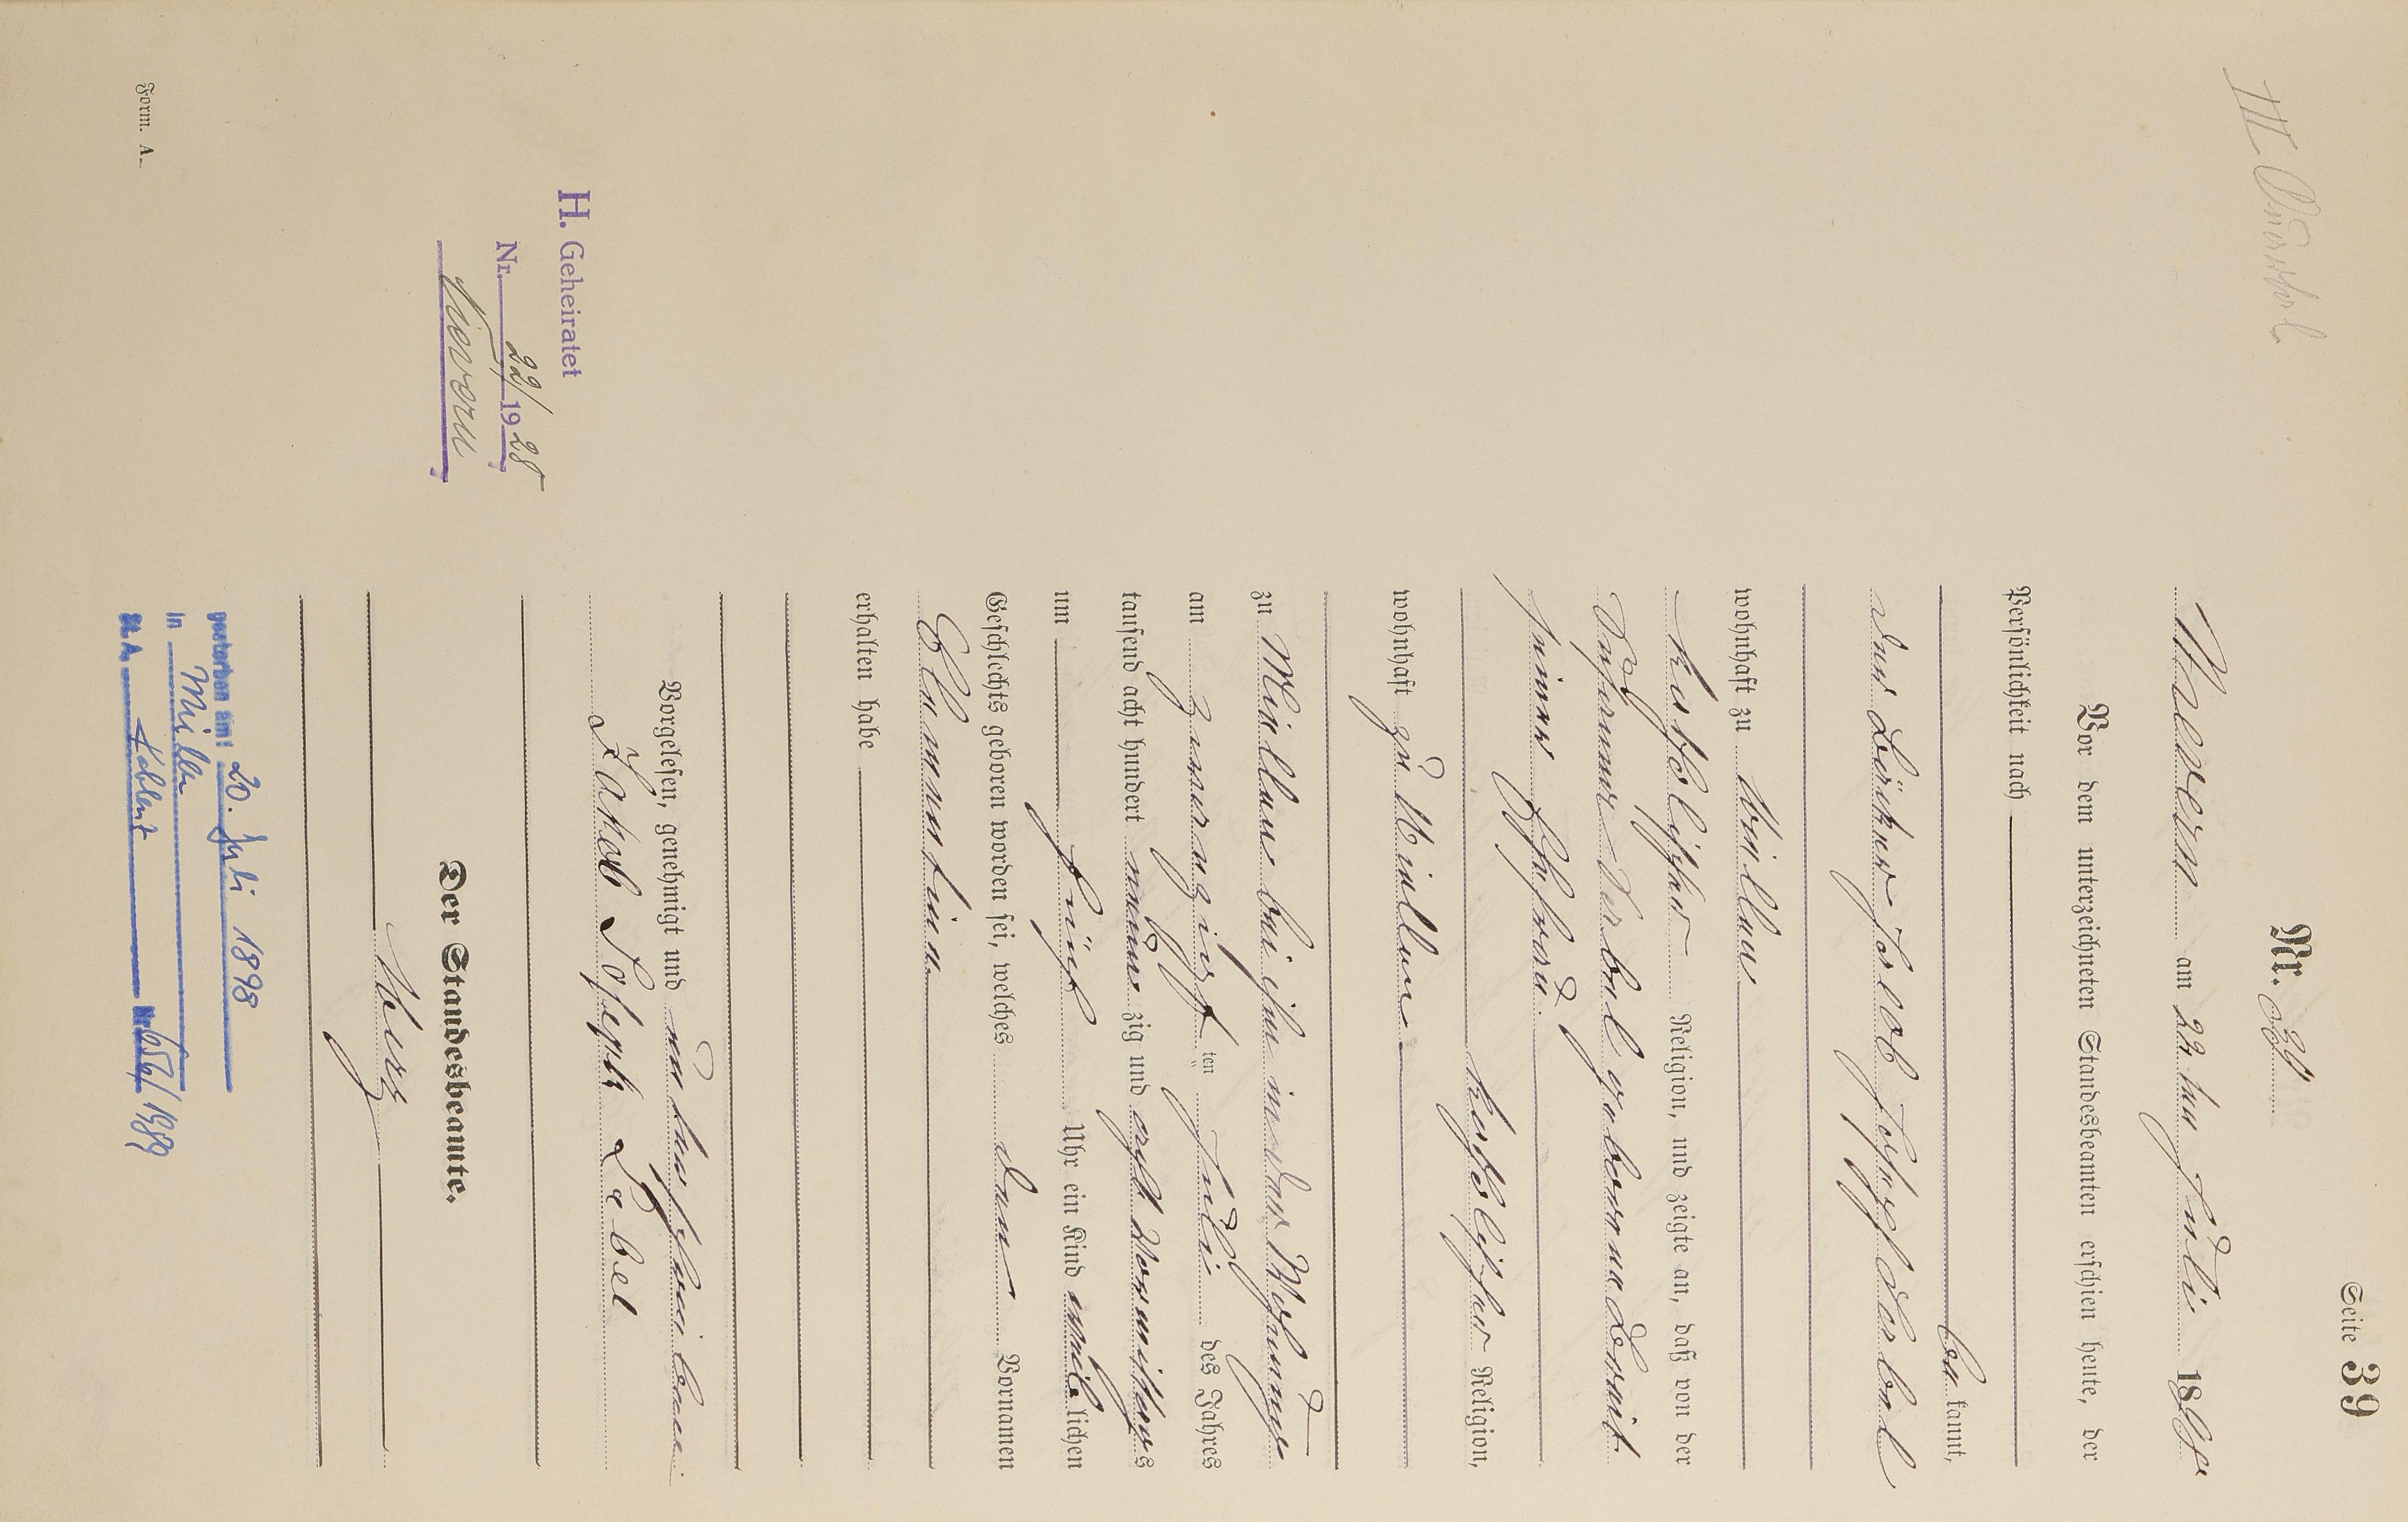 Seite 39
Nr. 39
Nievern am 22ten Juli 1898
Vor dem unterzeichneten Standesbeamten erschien heute, der
Persönlichkeit nach
bekannt,
der Jacob Joseph Labal
wohnhaft zu Miellen
katholischer Religion, und zeigte an, daß von der
Labal geborene
seiner Ehefrau
katholischer Religion,
wohnhaft zu Miellen
zu Miellen bei ihm in der Wohnung
am zwanzigsten Juli des Jahres
tausend acht hundert neunzig und acht Vormittags
um fünf Uhr ein Kind weiblichen
Geschlechts geboren worden sei, welches den Vornamen
Clementine
erhalten habe
Vorgelesen, genehmigt und unterschrieben
Jakob Joseph Label
Der Standesbeamte.
H. Geheiratet
Nr. 22/1928
Nievern
gestorben am: 20. Juli 1898
in
St. A. Nr. 656/1989
Form. A.